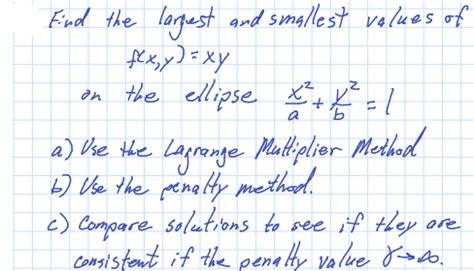 Find the largest and smallest values of
f(x,y) = xy
on the ellipse x²/a + y²/b = 1
a) Use the Lagrange Multiplier Method
b) Use the penalty method.
c) Compare solutions to see if they are
consistent if the penalty value γ→∞.